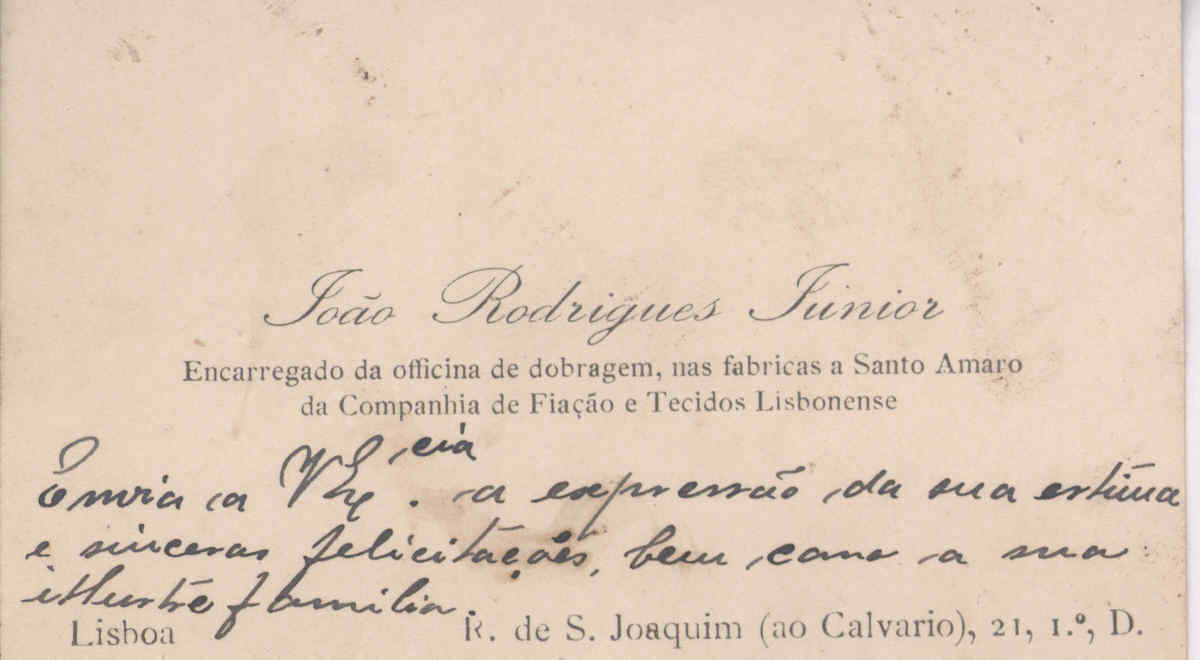 João Rodrigues Júnior
Encarregado da officina de dobragem, nas fabricas a Santo Amaro
da Companhia de Fiação e Tecidos Lisbonense
Envia a V Ex.cia a expressão da sua estima
e sinceras felicitações, bem como a sua
illustre familia.
Lisboa R. de S. Joaquim (ao Calvario), 21, 1.º, D.